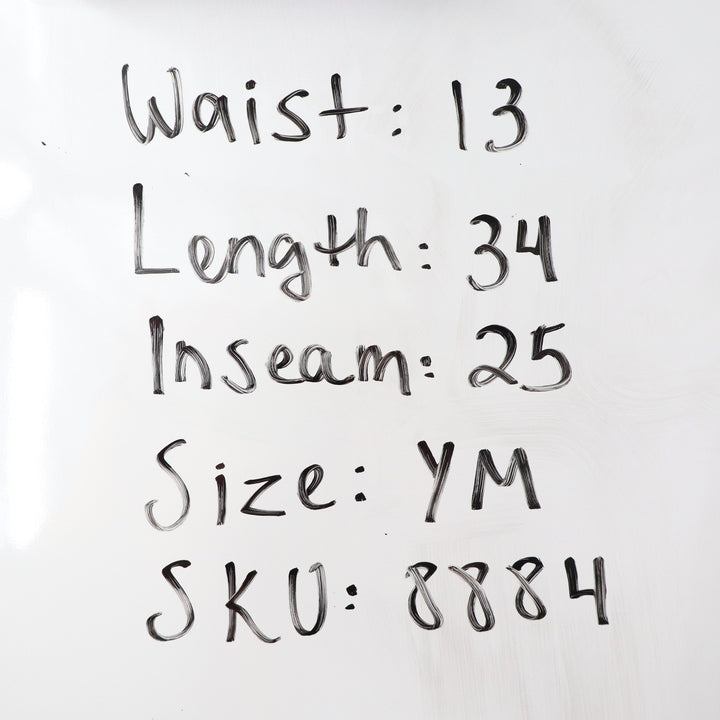 Waist: 13
Length: 34
Inseam: 25
Size: YM
SKU: 8884